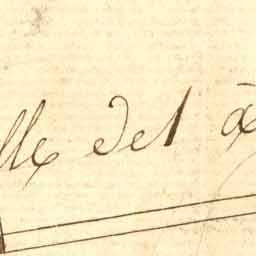 lle del